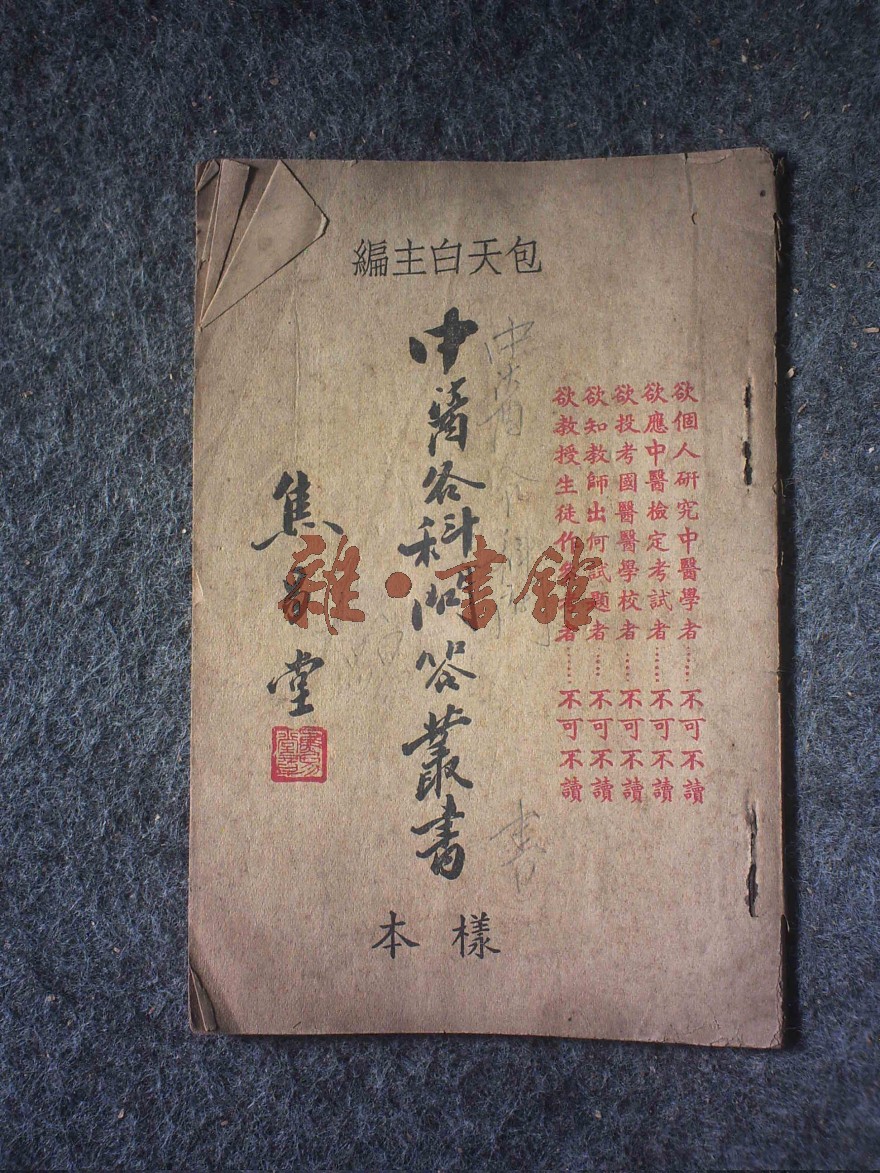 包天白主編
欲個人研究中醫學者……不可不讀
欲應中醫檢定考試者……不可不讀
欲投考國醫醫學校者……不可不讀
欲知教師出何試題者……不可不讀
欲教授生徒作 者……不可不讀
中醫各科問答叢書
焦易堂
樣本
雜·書館